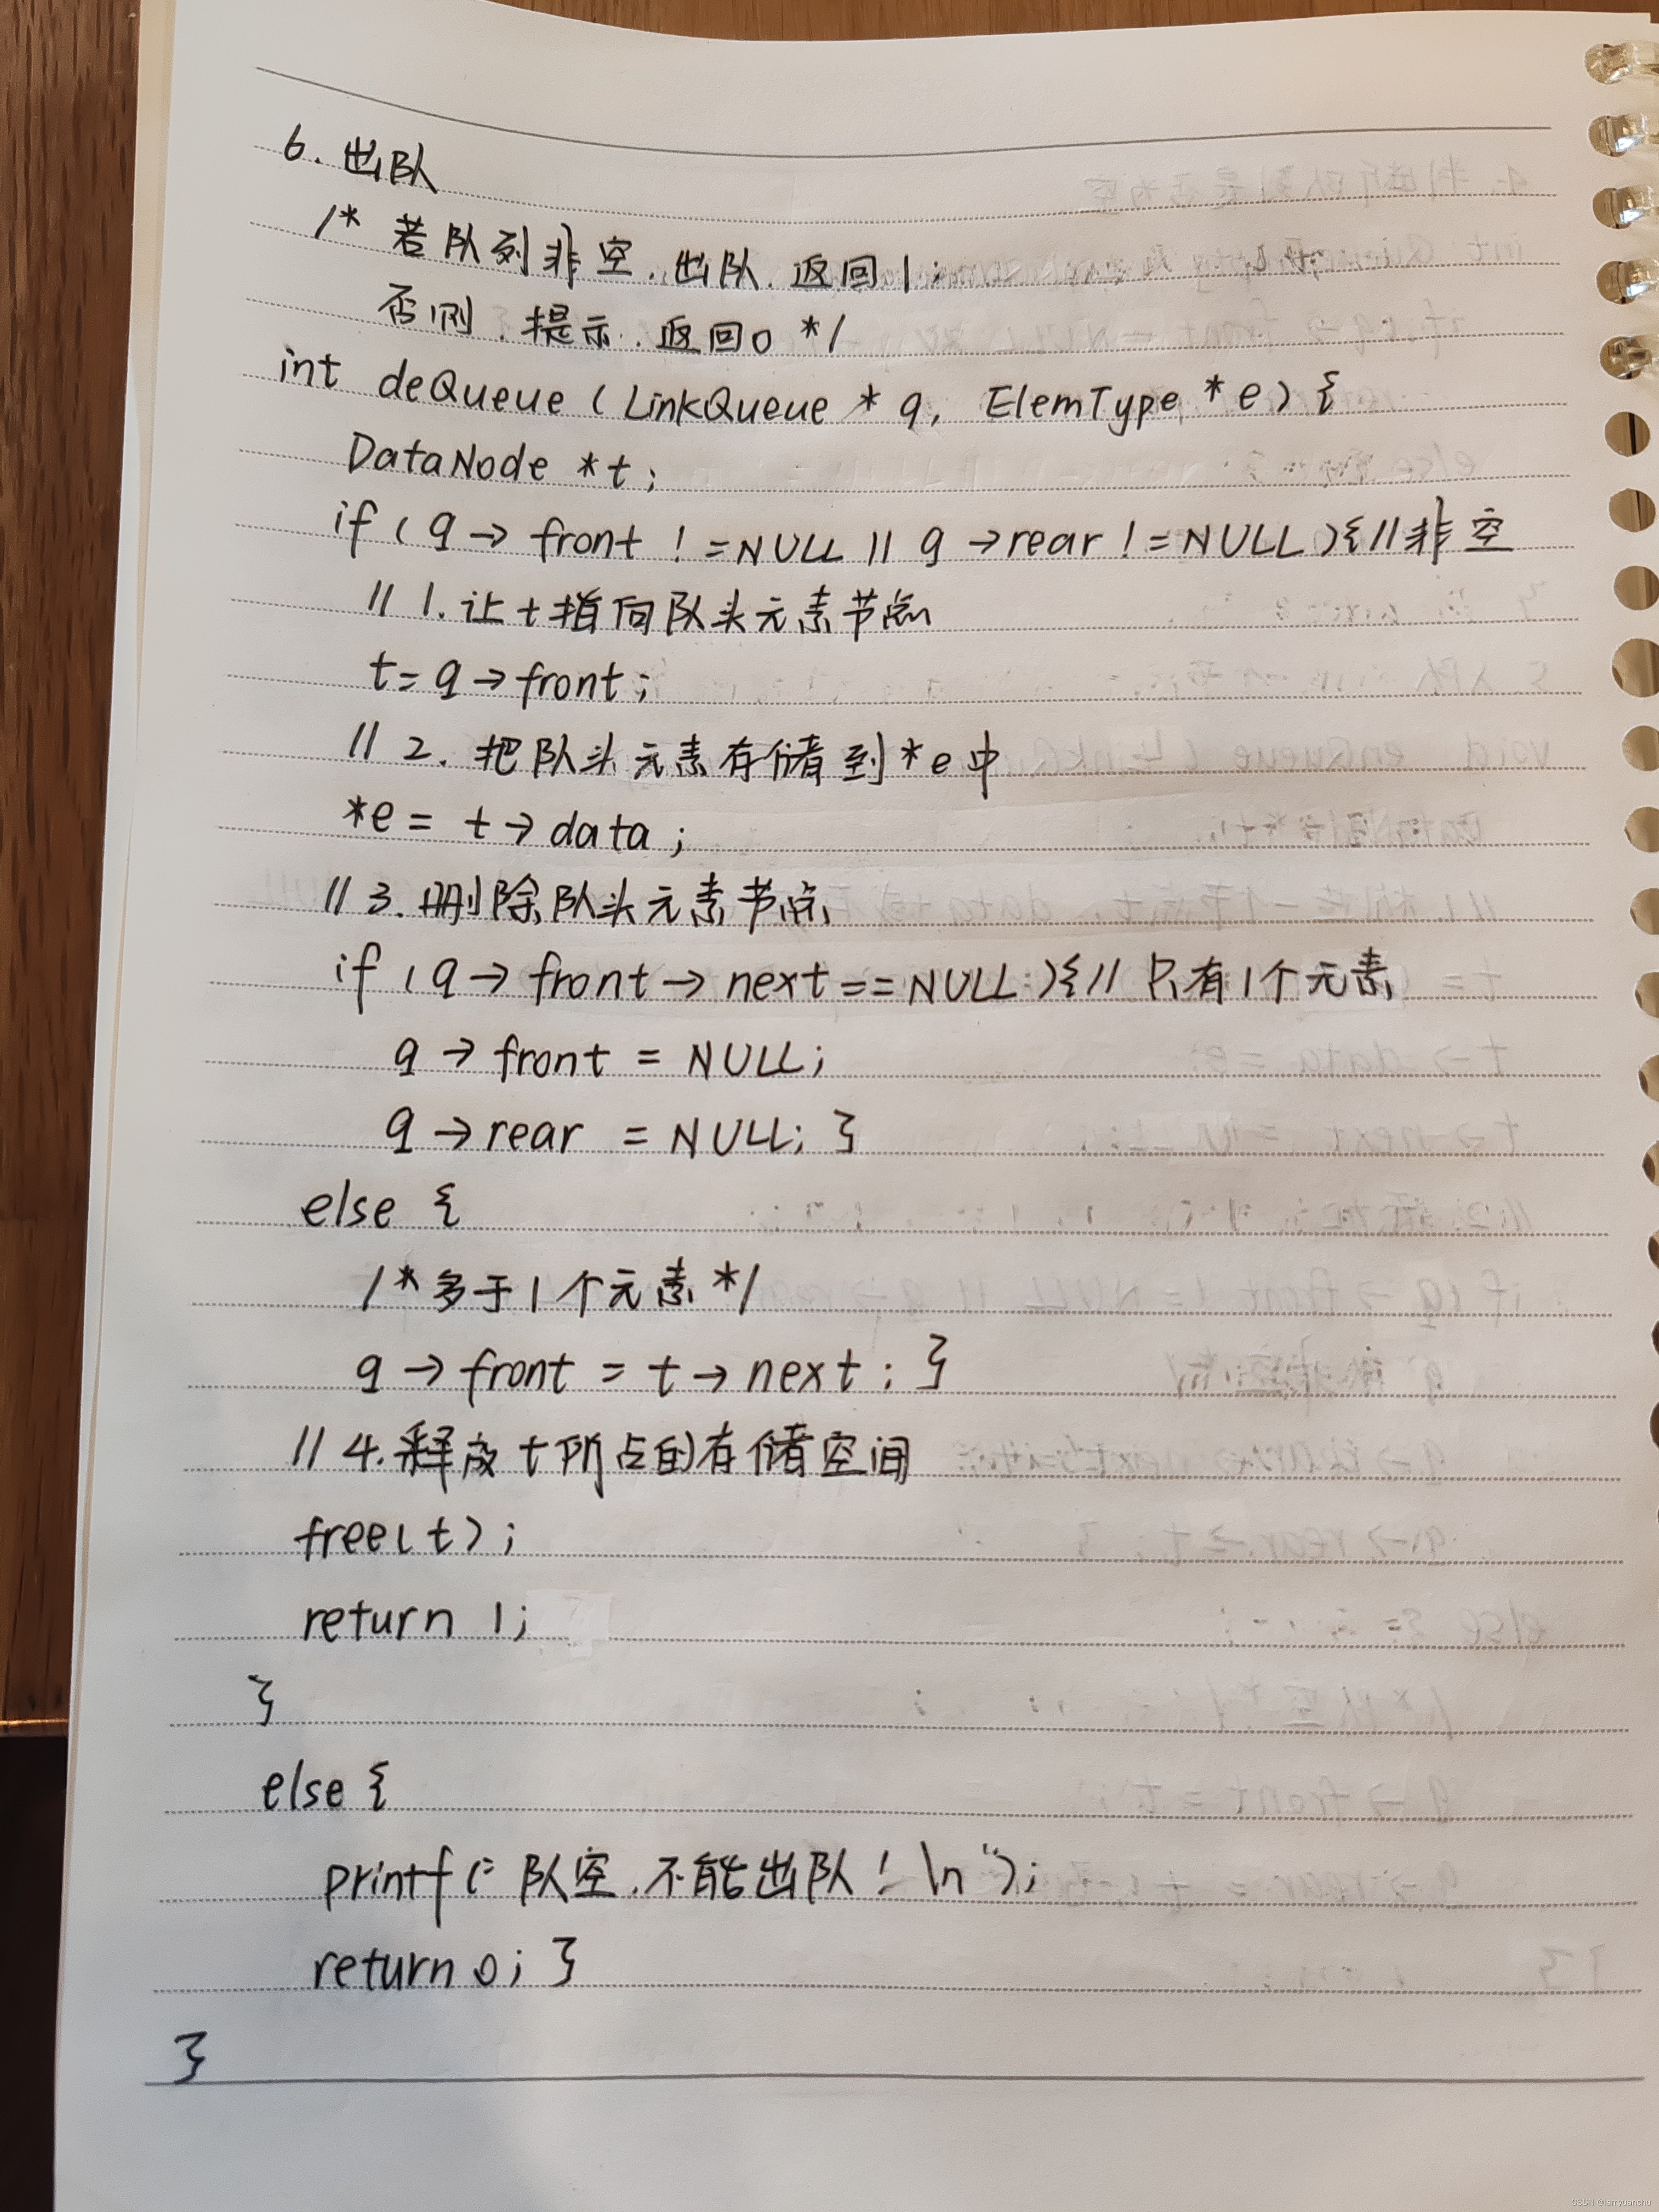 6. 出队
/* 若队列非空,出队,返回1;
否则,提示,返回0 */
int deQueue (LinkQueue * q, ElemType * e) {
DataNode *t;
if (q → front != NULL || q → rear != NULL){//非空
// 1. 让t指向队头元素节点
t = q → front;
// 2. 把队头元素存储到*e中
*e = t → data;
// 3. 删除队头元素节点
if (q → front → next == NULL){// 只有1个元素
q → front = NULL;
q → rear = NULL; }
else {
/*多于1个元素*/
q → front = t → next; }
// 4. 释放t所占的存储空间
free(t);
return 1;
}
else {
printf("队空,不能出队!\n");
return 0; }
}
CSDN @iamyuanchu